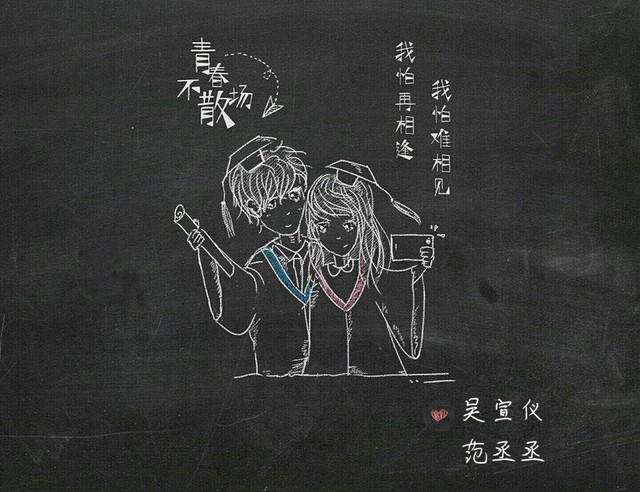 青春
不散场
我怕难相见
我怕再相逢
吴宣仪
范丞丞